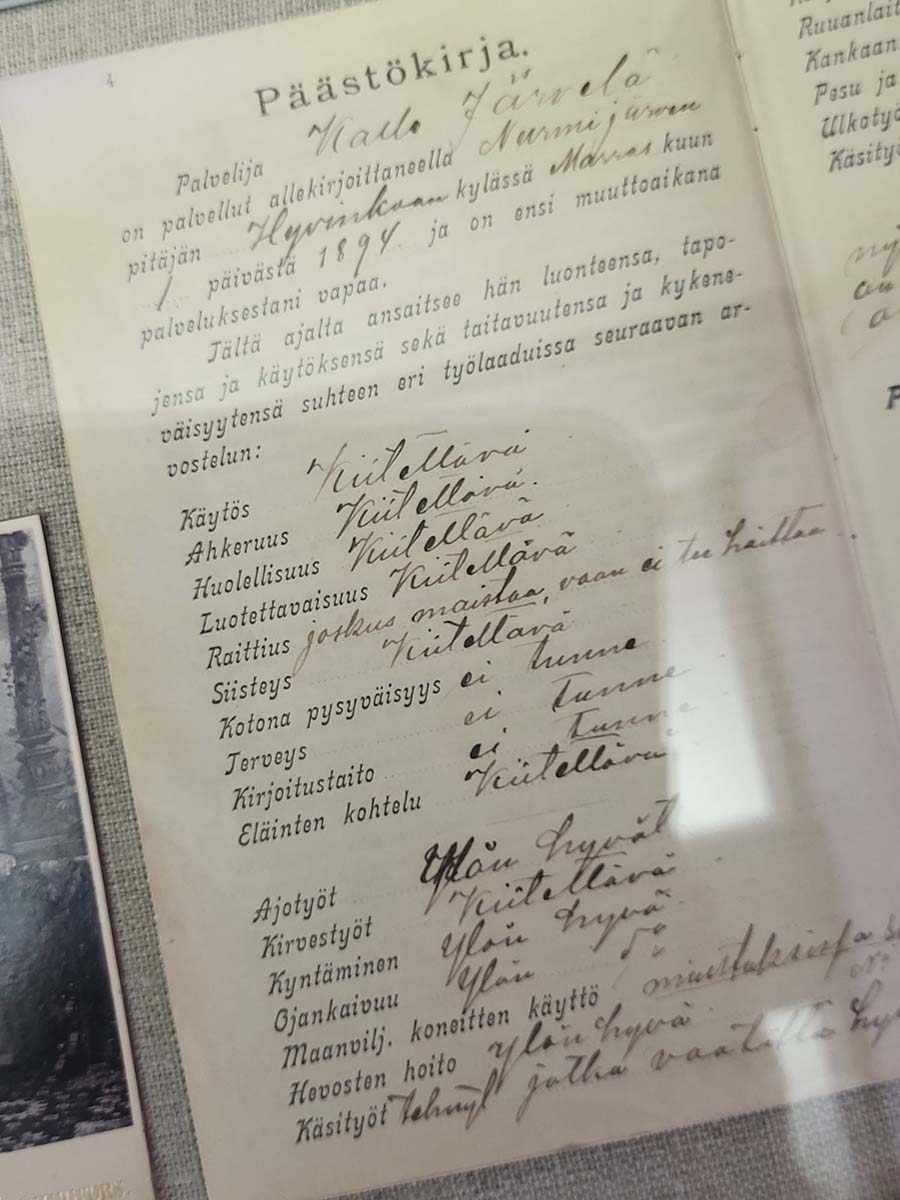 4
Päästökirja.
Palvelija Kalle Järvelä
on palvellut allekirjoittaneella Nurmijärven
pitäjän Hyvinkään kylässä Marras kuun
1 päivästä 1894 ja on ensi muuttoaikana
palveluksestani vapaa.
Tältä ajalta ansaitsee hän luonteensa, tapo-
jensa ja käytöksensä sekä taitavuutensa ja kykene-
väisyytensä suhteen eri työlaaduissa seuraavan ar-
vostelun:
Käytös Kiitettävä
Ahkeruus Kiitettävä.
Huolellisuus Kiitettävä
Luotettavaisuus Kiitettävä
Raittius joskus maistaa, vaan ei tee haittaa
Siisteys Kiitettävä
Kotona pysyväisyys ei tunne
Terveys ei tunne
Kirjoitustaito ei tunne
Eläinten kohtelu Kiitettävä
Ajotyöt Ylön hyvät
Kirvestyöt Kiitettävä
Kyntäminen Ylön hyvä
Ojankaivuu Ylön
Maanvilj. koneitten käyttö
Hevosten hoito Ylön hyvä
Käsityöt
Ruuanlait
Kankaan
Pesu ja
Ulkotyö
Käsityö